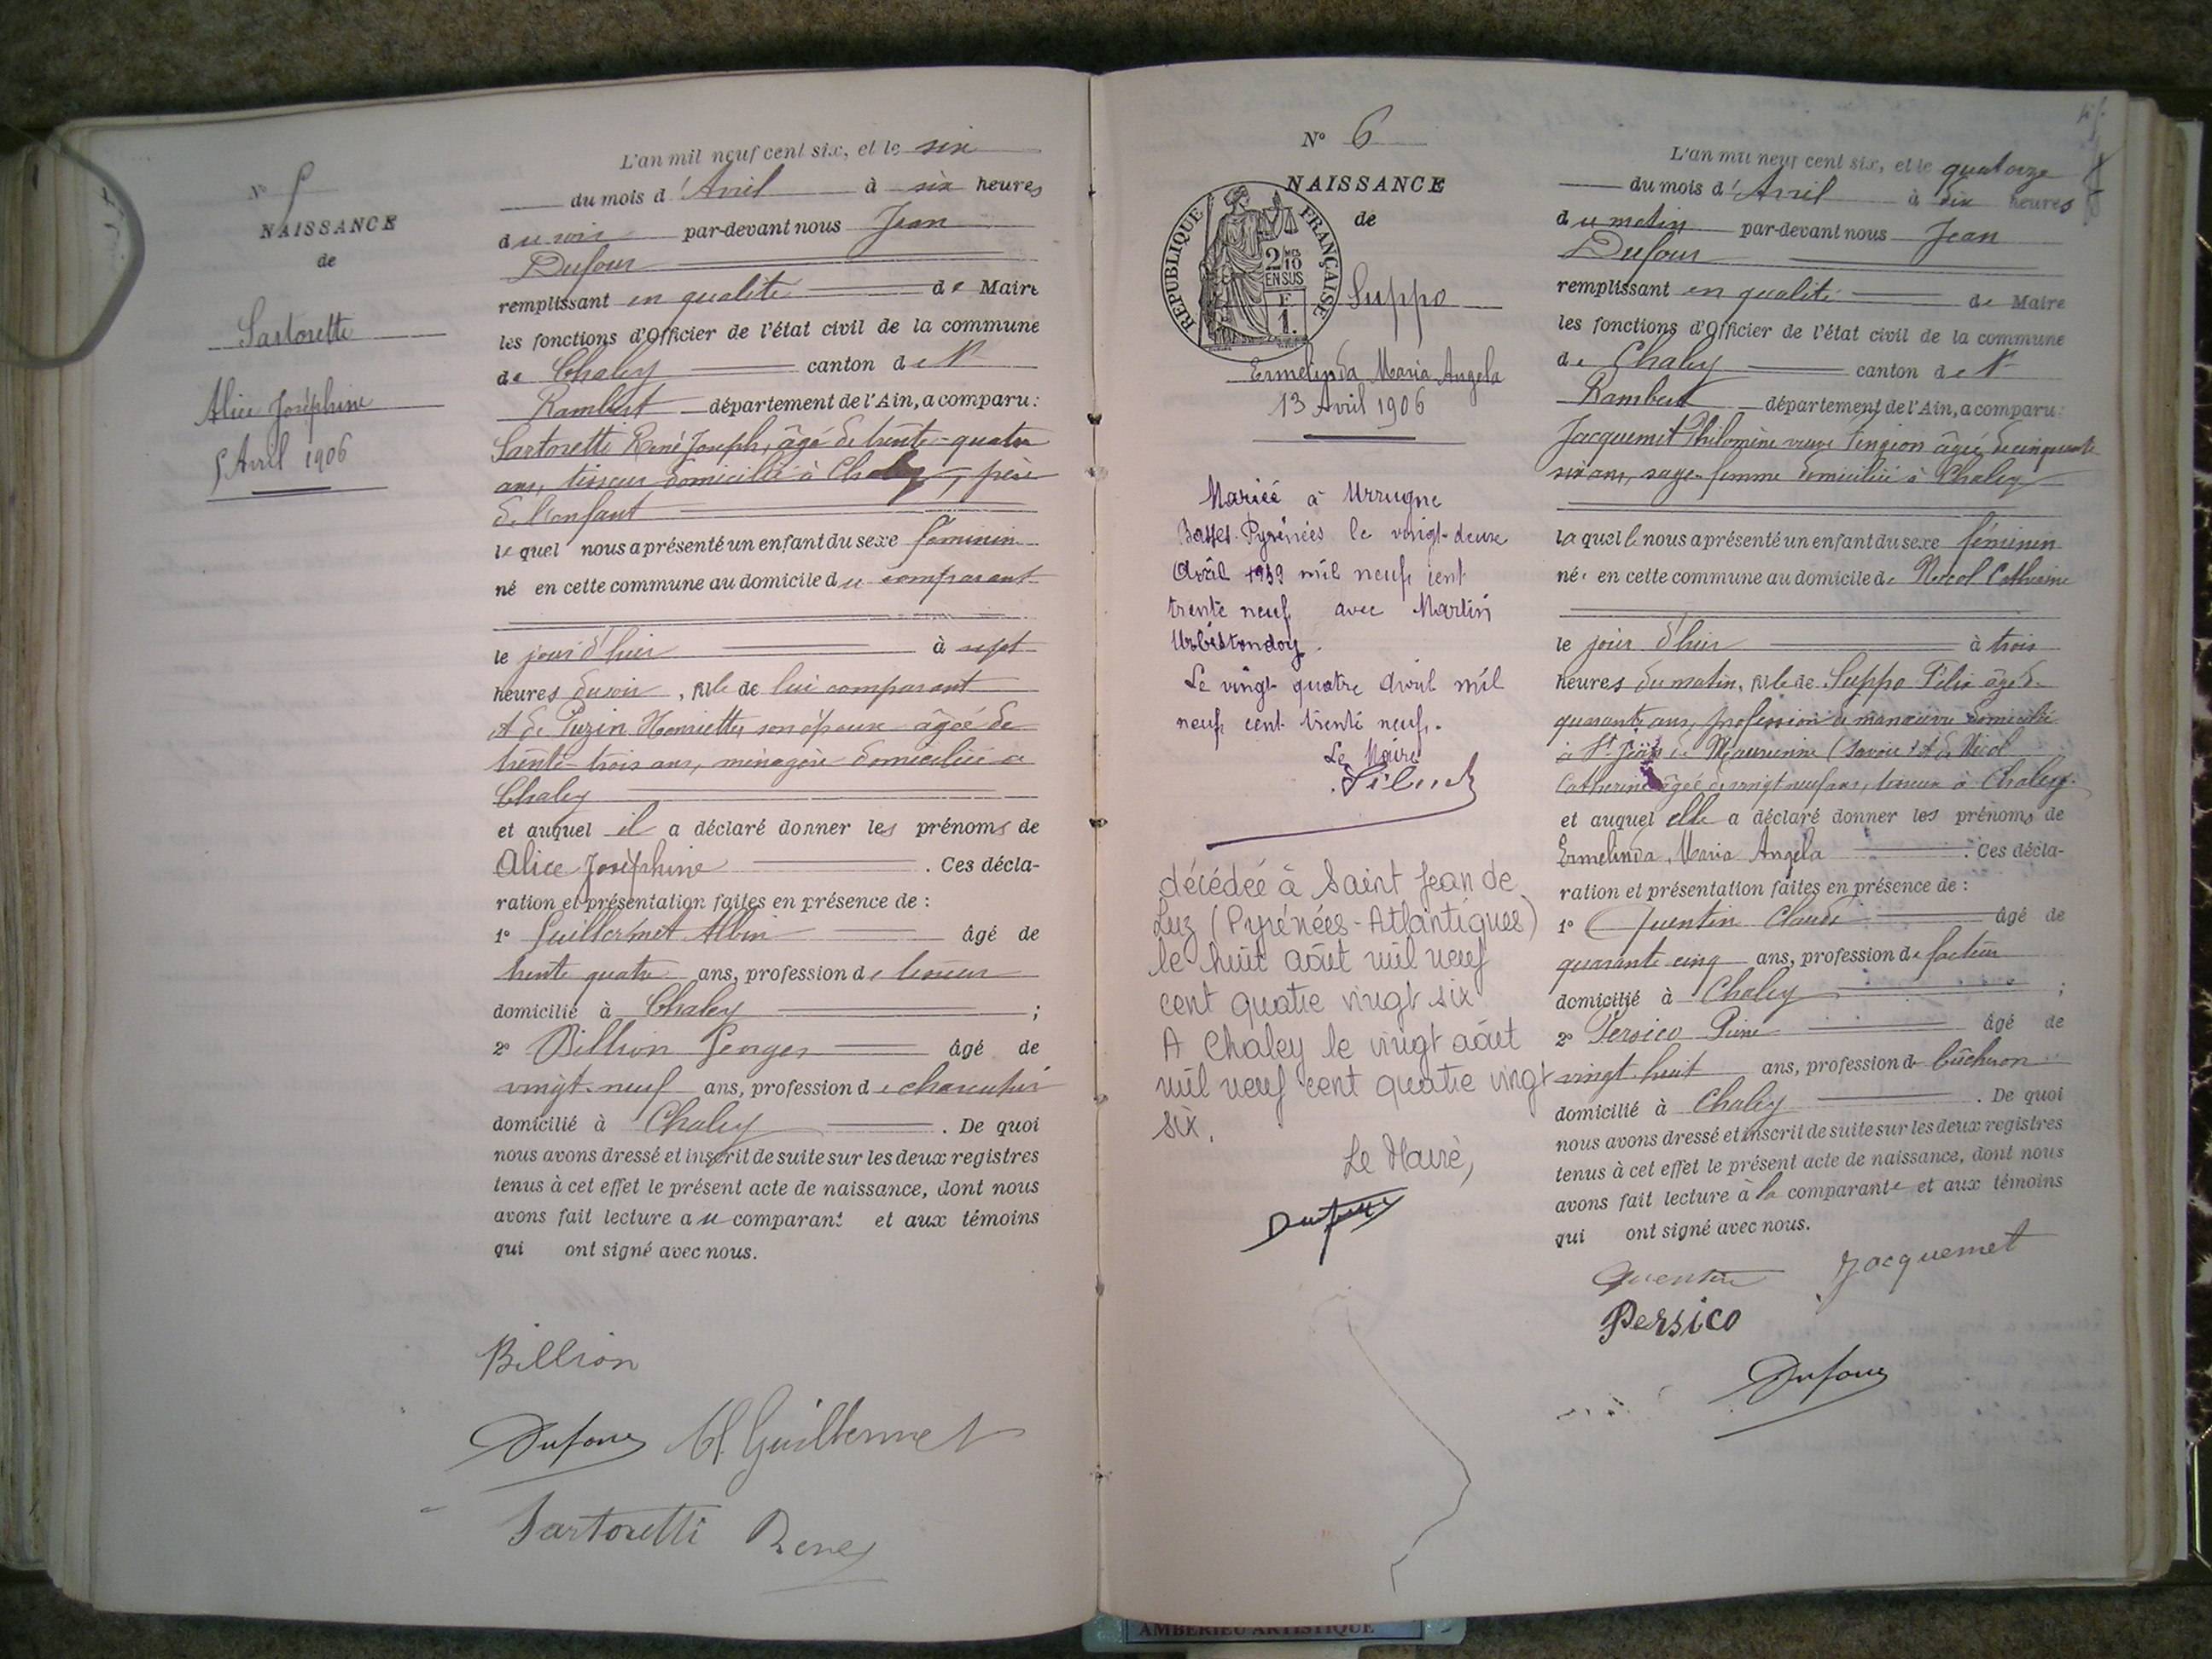 N° 5
NAISSANCE
de
Sartoretti
Alice Joséphine
5 Avril 1906
L'an mil neuf cent six, et le six
du mois d'Avril à six heures
du soir par-devant nous Jean
Dufour
remplissant en qualité de Maire
les fonctions d'Officier de l'état civil de la commune
de Chaley canton de St
Rambert département de l'Ain, a comparu :
Sartoretti René Joseph, âgé de trente-quatre
ans, tisseur domicilié à Chaley, père
de l'enfant
lequel nous a présenté un enfant du sexe féminin
né en cette commune au domicile du comparant
le jour d'hier à sept
heures du soir, fille de lui comparant
et de Puzin Henriette, son épouse âgée de
trente-trois ans, ménagère domiciliée à
Chaley
et auquel il a déclaré donner les prénoms de
Alice Joséphine . Ces décla-
ration et présentation faites en présence de :
1° Guillermet Albin âgé de
trente quatre ans, profession de tisseur
domicilié à Chaley ;
2° Billion Georges âgé de
vingt-neuf ans, profession de charcutier
domicilié à Chaley . De quoi
nous avons dressé et inscrit de suite sur les deux registres
tenus à cet effet le présent acte de naissance, dont nous
avons fait lecture au comparant et aux témoins
qui ont signé avec nous.
Billion
Dufour A. Guillermet
Sartoretti René
N° 6
NAISSANCE
de
RÉPUBLIQUE FRANÇAISE
2 MES
10
EN SUS
F.
1.
Suppo
Ermelinda Maria Angela
13 Avril 1906
Mariée à Urrugne
Basses-Pyrénées le vingt-deux
Avril 1939 mil neuf cent
trente neuf avec Martin
Urbistondoy.
Le vingt quatre Avril mil
neuf cent trente neuf.
Le Maire
décédée à Saint Jean de
Luz (Pyrénées-Atlantiques)
le huit août mil neuf
cent quatre vingt six
A Chaley le vingt août
mil neuf cent quatre vingt
six.
Le Maire,
L'an mil neuf cent six, et le quatorze
du mois d'Avril à dix heures
du matin par-devant nous Jean
Dufour
remplissant en qualité de Maire
les fonctions d'Officier de l'état civil de la commune
de Chaley canton de St
Rambert département de l'Ain, a comparu :
Jacquemet Philomène veuve âgée de cinquante
six ans, sage-femme domiciliée à Chaley
laquelle nous a présenté un enfant du sexe féminin
née en cette commune au domicile de Nicol Catherine
le jour d'hier à trois
heures du matin, fille de Suppo Félix âgé de
quarante ans, profession de manœuvre domicilié
à St Jean de Maurienne (Savoie) et de Nicol
Catherine âgée de vingt neuf ans, tisseuse à Chaley.
et auquel elle a déclaré donner les prénoms de
Ermelinda, Maria Angela . Ces décla-
ration et présentation faites en présence de :
1° Quentin Claude âgé de
quarante cinq ans, profession de facteur
domicilié à Chaley ;
2° Persico Pierre âgé de
vingt-huit ans, profession de bûcheron
domicilié à Chaley . De quoi
nous avons dressé et inscrit de suite sur les deux registres
tenus à cet effet le présent acte de naissance, dont nous
avons fait lecture à la comparante et aux témoins
qui ont signé avec nous.
Quentin Jacquemet
Persico
Dufour
AMBERIEU ARTISTIQUE